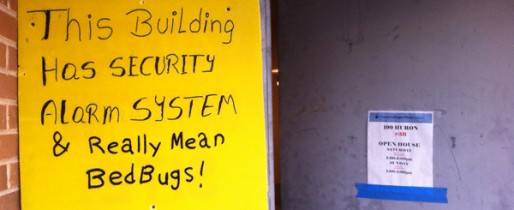 This Building
Has SECURITY
Alarm SYSTEM
& Really Mean
BedBugs!
100 HURON
OPEN HOUSE
SATURDAY
SUNDAY